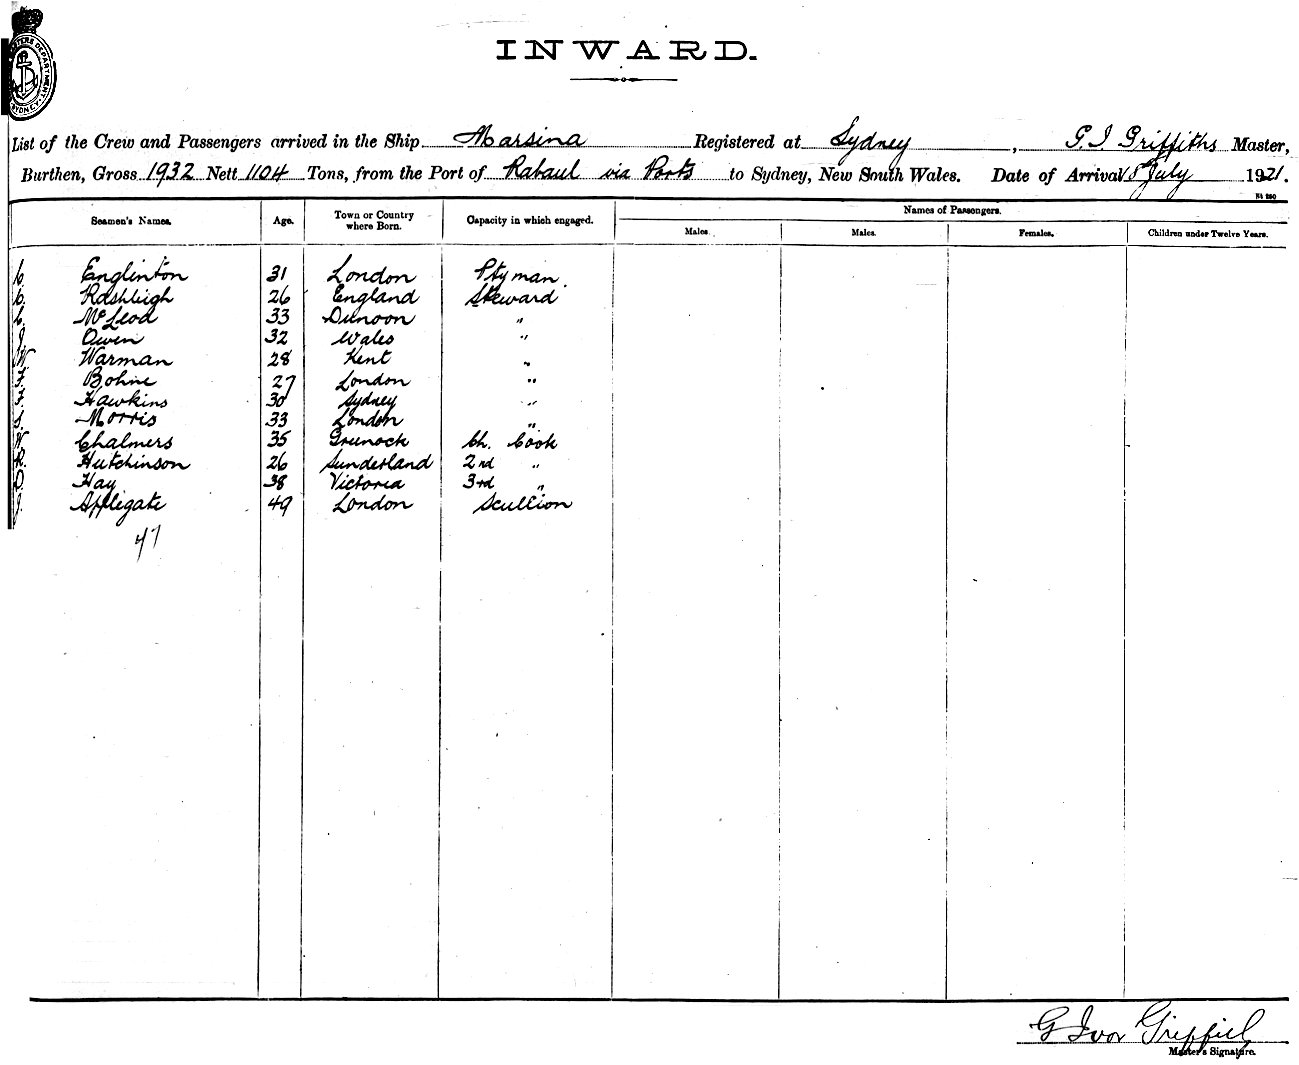 INWARD.
List of the Crew and Passengers arrived in the Ship Marsina Registered at Sydney, G. I Griffiths Master,
Burthen, Gross 1932 Nett 1104 Tons, from the Port of Rabaul via Ports to Sydney, New South Wales. Date of Arrival July 1921.
Seamen's Names. Age. Town or Country where Born. Capacity in which engaged. Names of Passengers.
Males. Males. Females. Children under Twelve Years.
C. Englinton 31 London Ptyman.
Rashleigh 26 England Steward
McLeod 33 Dunoon "
Owen 32 Wales "
W Warman 28 Kent "
Bohne 27 London "
Hawkins 30 Sydney "
Morris 33 London "
W Chalmers 35 Greenock Ch. Cook
Hutchinson 26 Sunderland 2nd "
D. Hay 38 Victoria 3rd "
Applegate 49 London Scullion
47
G Ivor Griffith
Master's Signature.